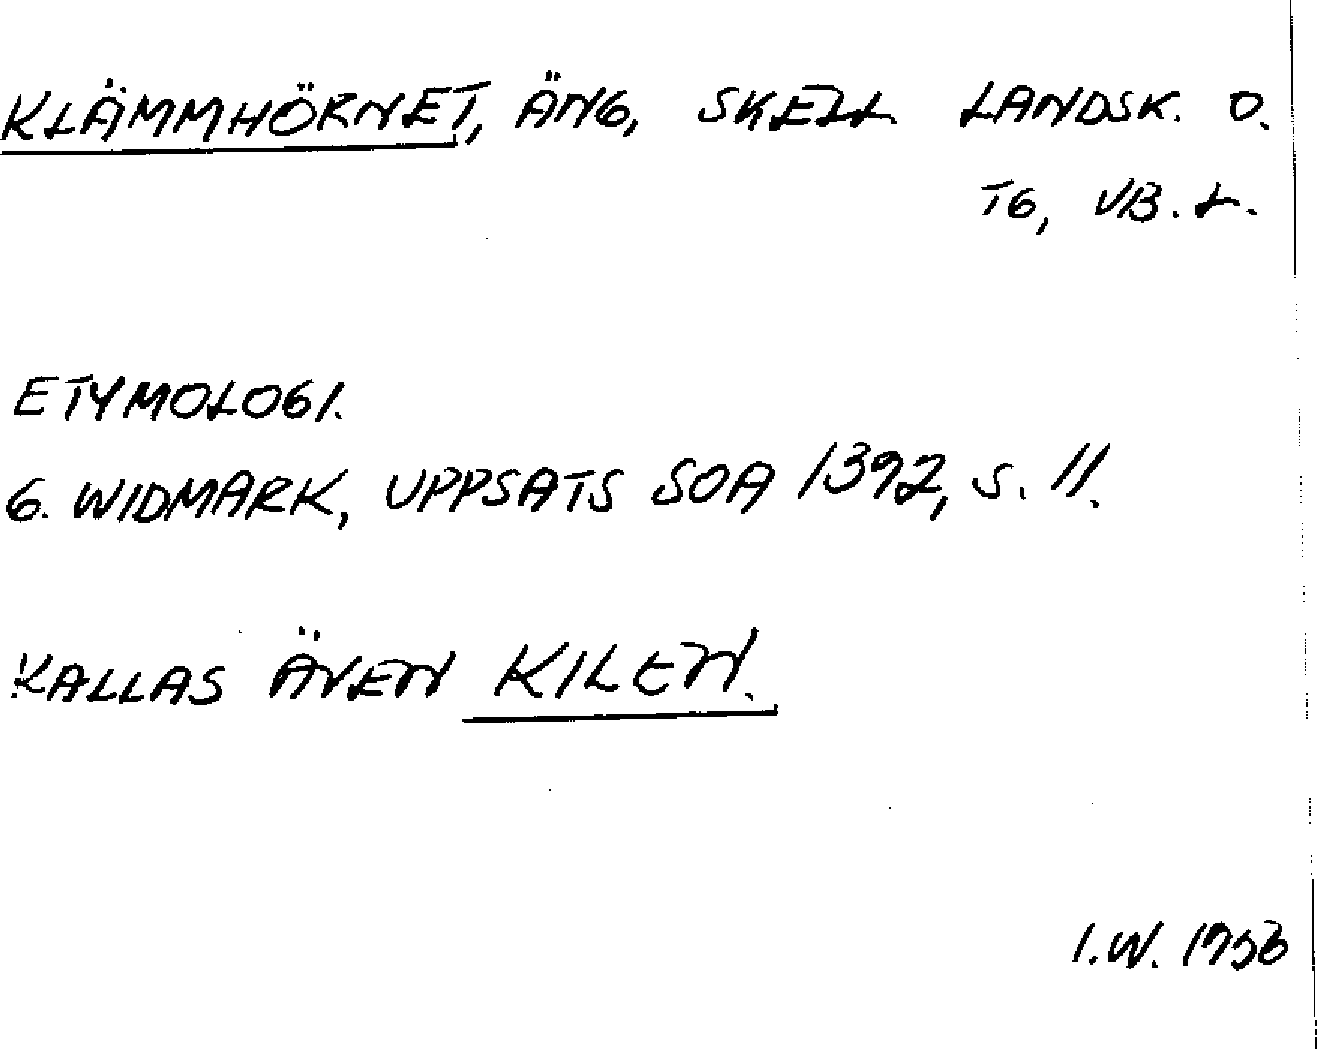 KLÄMMHÖRNET, ÄNG, SKELL LANDSK. O.
TG, VB. L.
ETYMOLOGI.
G. WIDMARK, UPPSATS SOA 1392, S. 11.
KALLAS ÄVEN KILEN.
I.W.